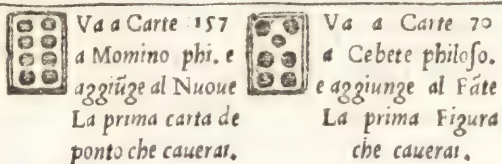 Va a Carte 157
a Momino phi. e
aggiũge al Nuoue
La prima carta de
ponto che cauerai.
Va a Carte 70
a Cebete philoſo.
e aggiunge al Fãte
La prima Figura
che cauerai.